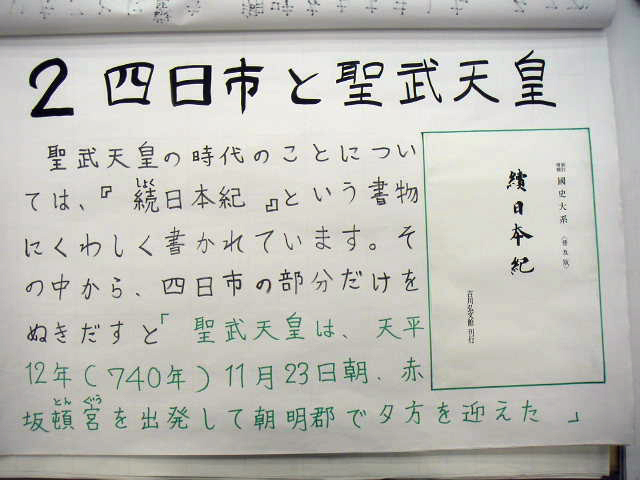 2 四日市と聖武天皇
聖武天皇の時代のことについ
ては、『続日本紀』という書物
にくわしく書かれています。そ
の中から、四日市の部分だけを
ぬきだすと「聖武天皇は、天平
12年(740年)11月23日朝、赤
坂頓宮を出発して朝明郡で夕方を迎えた」
しょく
とん ぐう
新訂増補 國史大系 (普及版)
續日本紀
吉川弘文館 刊行